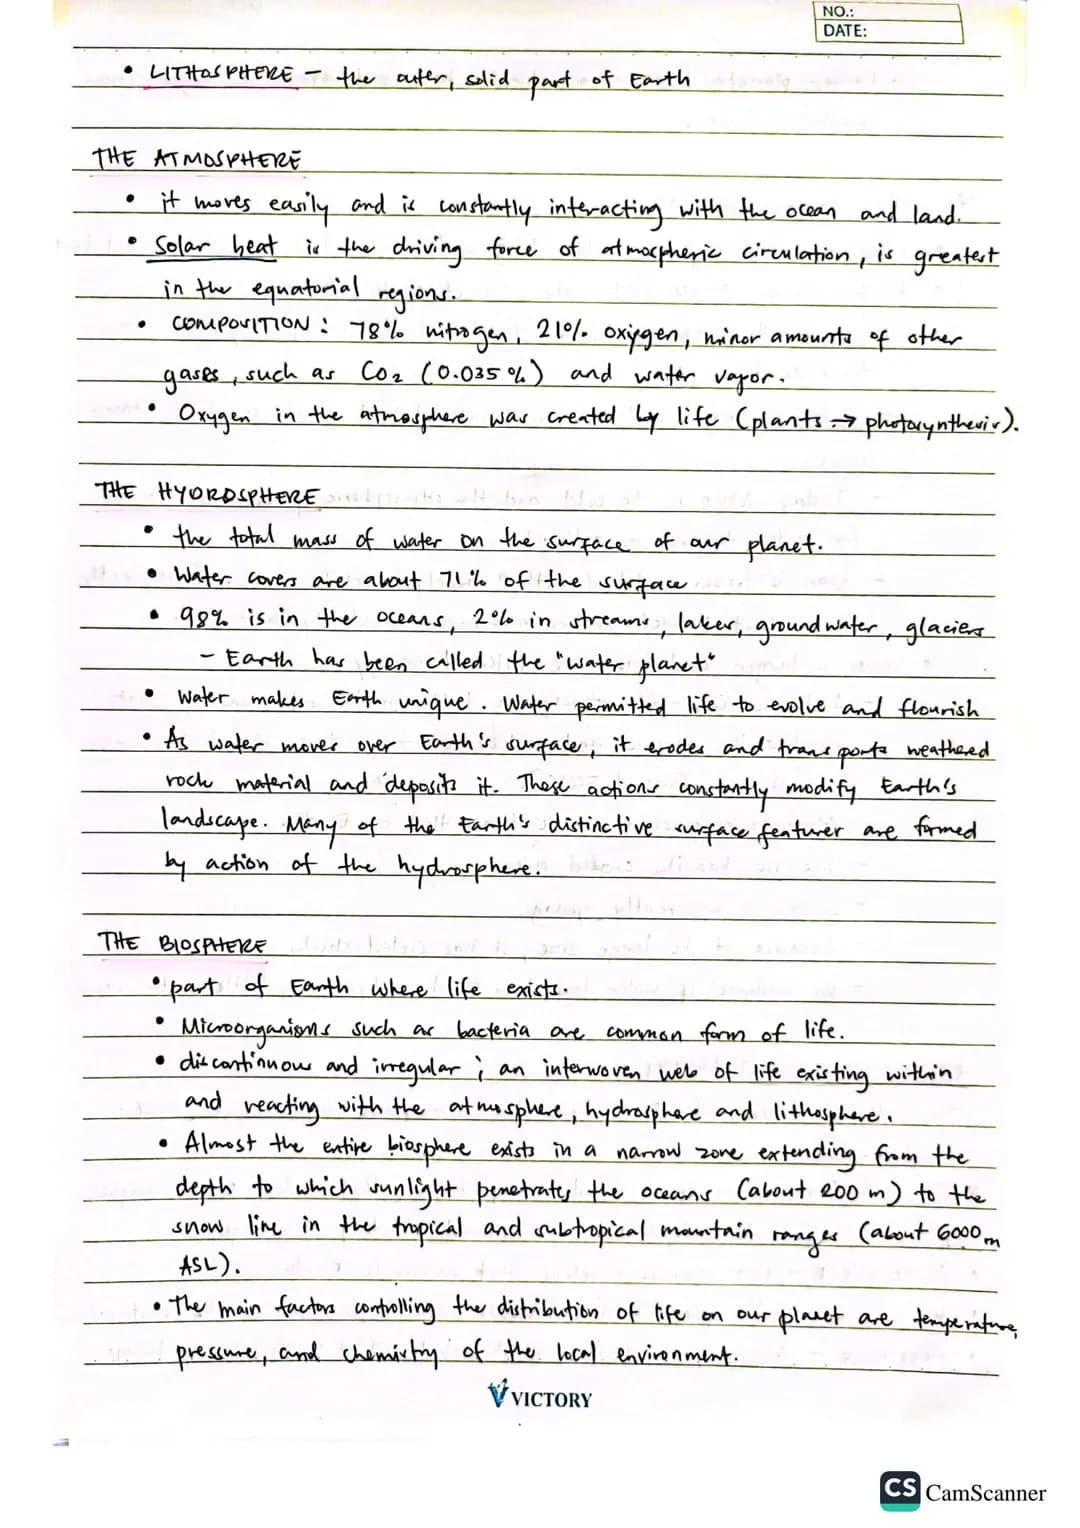 NO.:
DATE:
• LITHOSPHERE – the outer, solid part of Earth
THE ATMOSPHERE
• it moves easily and is constantly interacting with the ocean and land.
• Solar heat is the driving force of atmospheric circulation, is greatest
in the equatorial regions.
• COMPOSITION : 78% nitrogen, 21% oxygen, minor amounts of other
gases, such as CO2 (0.035%) and water vapor.
• Oxygen in the atmosphere was created by life (plants → photosynthesis).
THE HYDROSPHERE
• the total mass of water on the surface of our planet.
• Water covers are about 71% of the surface
• 98% is in the oceans, 2% in streams, lakes, groundwater, glaciers
– Earth has been called the "water planet"
• Water makes Earth unique. Water permitted life to evolve and flourish
• As water moves over Earth's surface, it erodes and transports weathered
rock material and deposits it. These actions constantly modify Earth's
landscape. Many of the Earth's distinctive surface features are formed
by action of the hydrosphere.
THE BIOSPHERE
• part of Earth where life exists.
• Microorganisms such as bacteria are common form of life.
• discontinuous and irregular ; an interwoven web of life existing within
and reacting with the atmosphere, hydrosphere and lithosphere.
• Almost the entire biosphere exists in a narrow zone extending from the
depth to which sunlight penetrates the oceans (about 200 m) to the
snow line in the tropical and subtropical mountain ranges (about 6000 m
ASL).
• The main factors controlling the distribution of life on our planet are temperature,
pressure, and chemistry of the local environment.
VICTORY
CS CamScanner